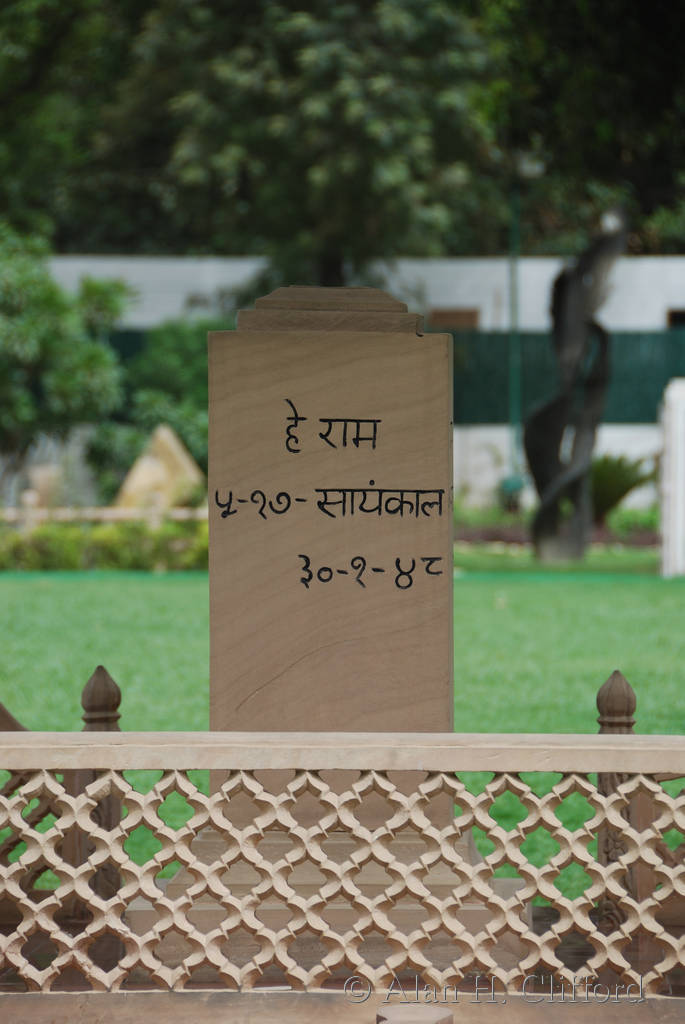 हे राम
५-१७- सायंकाल
३०-१-४८
© Alan H. Clifford